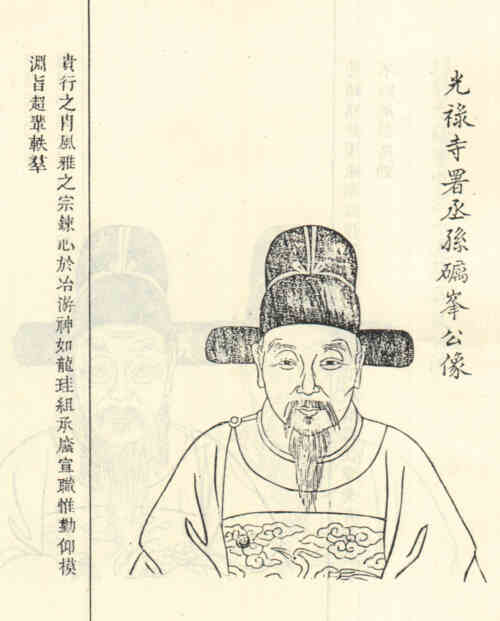 光禄寺署丞孫礪峯公像
貴行之冑風雅之宗錬心於冶游神如龍珪組承廕宣職惟勤仰模
淵旨超輩軼羣